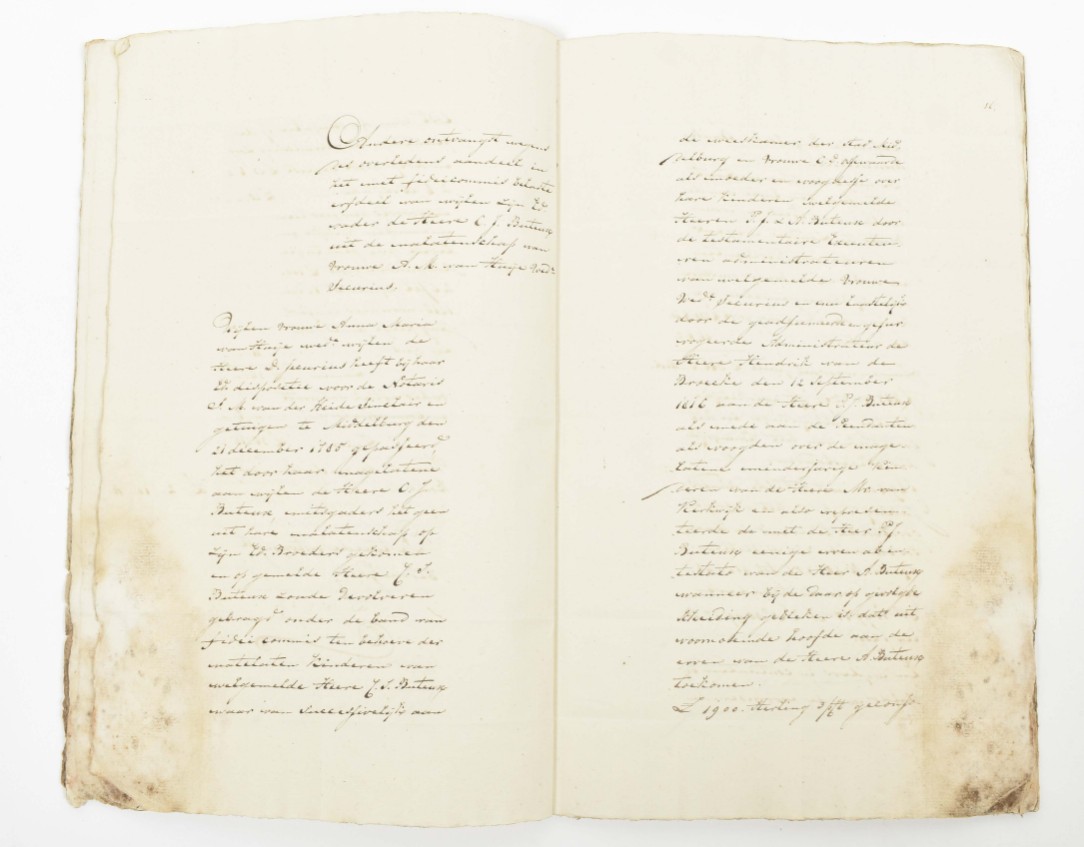 Andere ontvangst wegens
des overledens, aandeel in
het met fideicommis belaste
erfdeel van wijlen zijn Ed:
vader de Heere C. J. Buteux
uit de nalatenschap van
vrouwe A. M. van Huije Wed:
Seeurius.
Wijlen Vrouwe Anna Maria
van Huije wed: wijlen de
Heere D. Seeurius heeft bij haar
Ed: dispositie voor de Notaris
S. M. van der Heide Sinclair en
getuigen te Middelburg den
21 december 1785 gepasseerd,
het door haar nagelatene
aan wijlen de Heere C. J.
Buteux mitsgaders het geen
uit hare nalatenschap op
zijn Ed. Broeders gekomen
en op gemelde Heere C. J.
Buteux zoude devolveren
gebragt onder de band van
fidei commis ten behoeve der
natelaten kinderen van
welgemelde Heere C. J. Buteux
waar van successivelijk aan
16
de weeskamer der stad Mid,
delburg en vrouwe
als moeder en voogdesse over
hare kinderen welgemelde
Heeren P. J. & A. Buteux door
de testamentaire Executeu,
ren administrateuren
van welgemelde Vrouwe
Wed: Seeurius en nu laatstelijk
door de geadsumeerde en gesur,
rogeerde Administrateur de
Heere Hendrik van den
Broecke den 12 September
1816 aan de Heere P. J. Buteux
als mede aan de Rendanten
als voogden over de nage,
latene minderjarige Kin,
deren van de Heere Mr. van
Kerkwijk en also represen,
teerde de met de Heer P. J.
Buteux eenige erven ab in,
testato van de Heer A. Buteux
wanneer bij de daar op gevolgde
scheiding gebleken is, dat uit
voornoemde hoofde aan de
erven van de Heere A. Buteux
toekomen.
£ 1900. sterling 3 p Ct